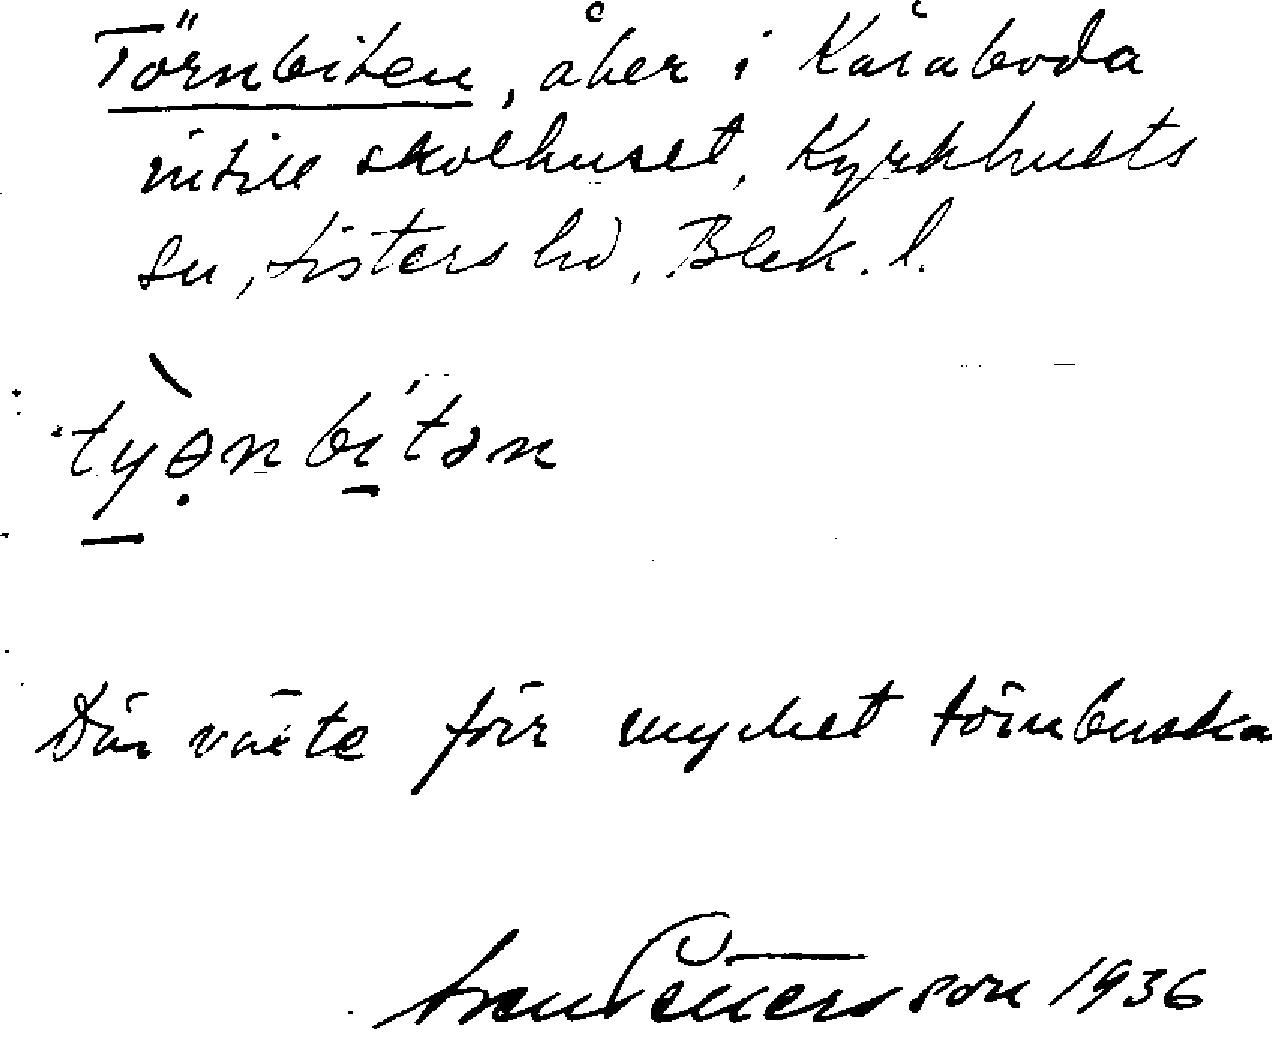 Törnbiten, åker i Kåraboda
intill skolhuset, Kyrkhults
sn, Listers hd, Blek. l.
tyọnbitən
Där växte förr mycket törnbuska
Sven Pettersson 1936